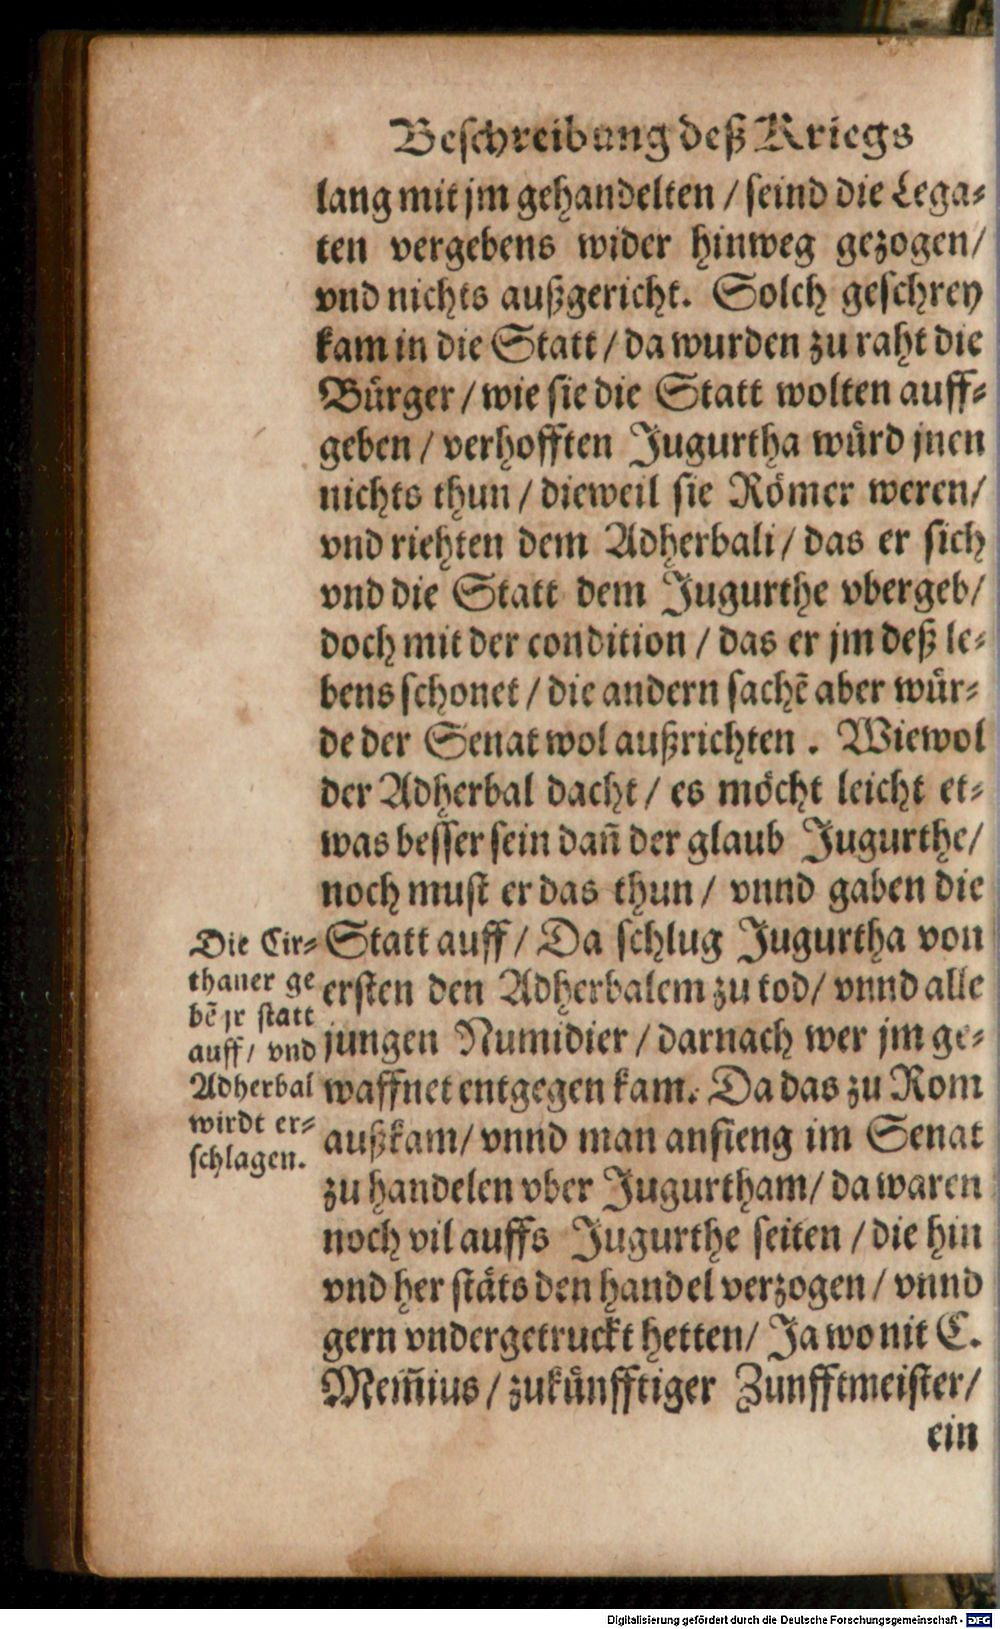 Beschreibung deß Kriegs
lang mit jm gehandelten / seind die Lega⸗
ten vergebens wider hinweg gezogen/
vnd nichts außgericht. Solch geschrey
kam in die Statt / da wurden zu raht die
Bürger / wie sie die Statt wolten auff⸗
geben / verhofften Jugurtha würd jnen
nichts thun / dieweil sie Römer weren/
vnd riehten dem Adherbali / das er sich
vnd die Statt dem Jugurthe vbergeb/
doch mit der condition / das er jm deß le⸗
bens schonet / die andern sachē aber wür⸗
de der Senat wol außrichten . Wiewol
der Adherbal dacht / es möcht leicht et⸗
was besser sein dañ der glaub Jugurthe/
noch must er das thun / vnnd gaben die
Statt auff / Da schlug Jugurtha von
ersten den Adherbalem zu tod/ vnnd alle
jungen Numidier / darnach wer jm ge⸗
waffnet entgegen kam. Da das zu Rom
außkam/ vnnd man anfieng im Senat
zu handelen vber Jugurtham/ da waren
noch vil auffs Jugurthe seiten / die hin
vnd her stäts den handel verzogen / vnnd
gern vndergetruckt hetten/ Ja wo nit C.
Mem̃ius / zukünfftiger Zunfftmeister/
ein
Die Cir⸗
thaner ge
bē jr statt
auff/ vnd
Adherbal
wirdt er⸗
schlagen.
Digitalisierung gefördert durch die Deutsche Forschungsgemeinschaft - DFG